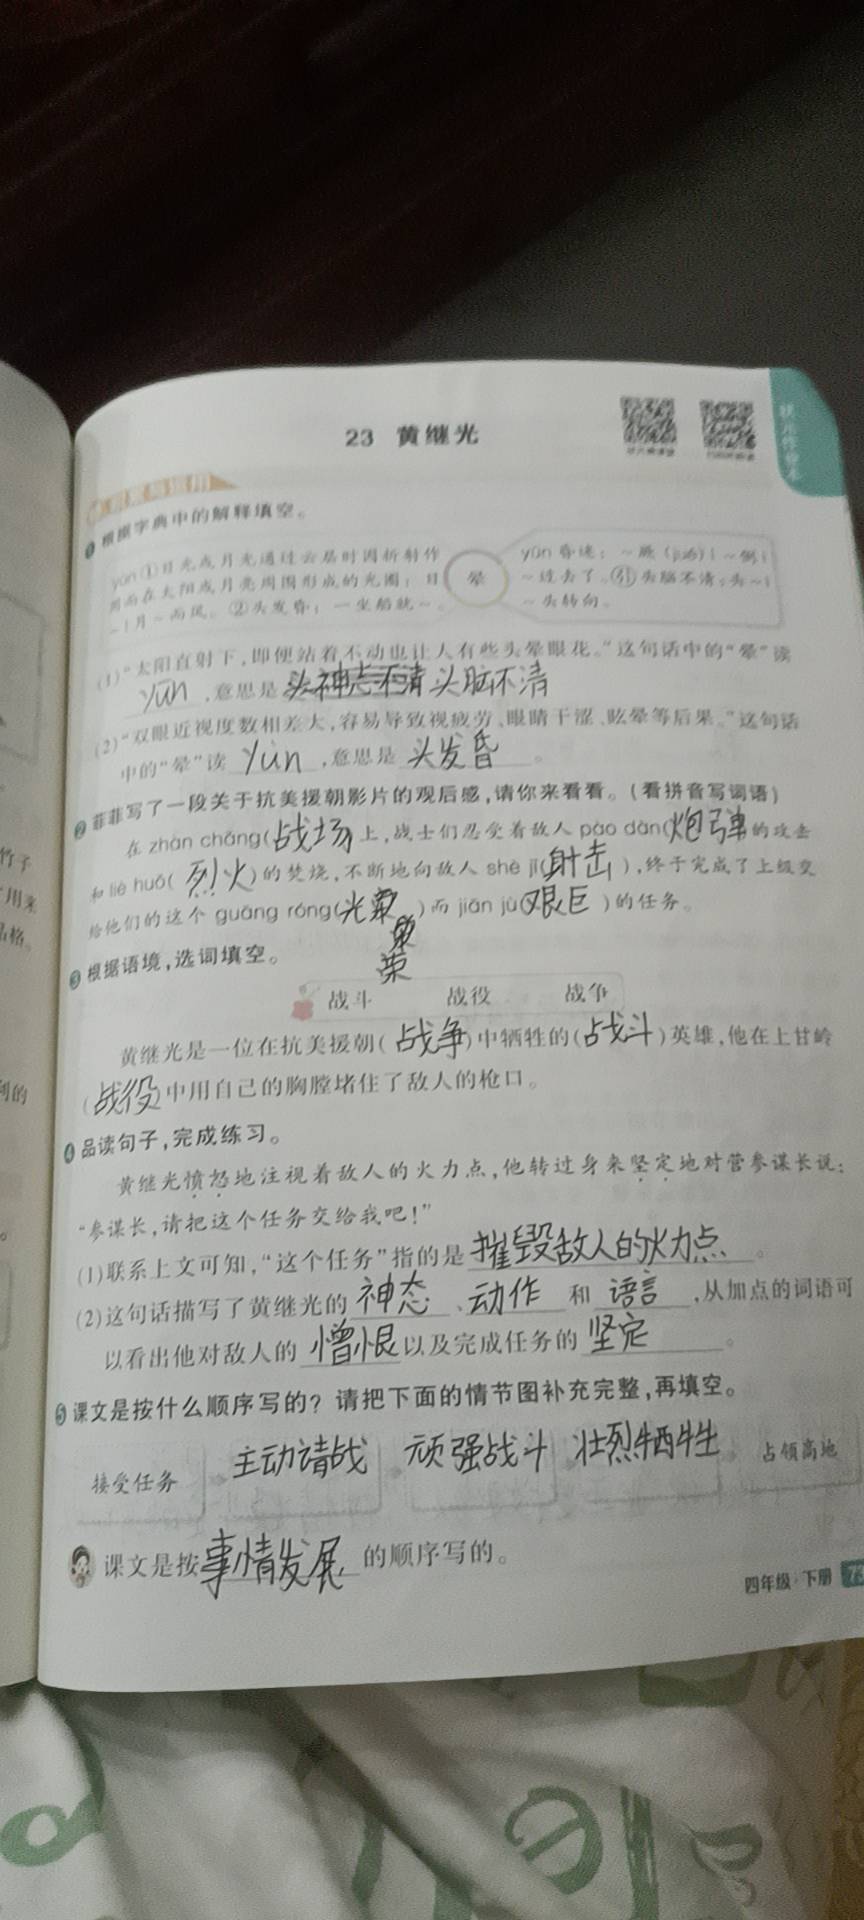 23 黄继光
状元作业本
1 根据字典中的解释填空。
yùn ①日光或月光通过云层时因折射作
用而在太阳或月亮周围形成的光圈：日
～|月～而风。②头发昏：一坐船就～。
晕
yūn 昏迷：～厥(jué)|～倒|
～过去了。 头脑不清：头～|
～头转向。
(1)“太阳直射下，即便站着不动也让人有些头晕眼花。”这句话中的“晕”读
yūn ，意思是 头脑不清
(2)“双眼近视度数相差大，容易导致视疲劳、眼睛干涩、眩晕等后果。”这句话
中的“晕”读 yùn ，意思是 头发昏 。
2 菲菲写了一段关于抗美援朝影片的观后感，请你来看看。(看拼音写词语)
在 zhàn chǎng(战场)上，战士们忍受着敌人 pào dàn(炮弹)的攻击
和 liè huǒ(烈火)的焚烧，不断地向敌人 shè jī(射击)，终于完成了上级交
给他们的这个 guāng róng(光荣)而 jiān jù(艰巨)的任务。
荣
3 根据语境，选词填空。
战斗 战役 战争
黄继光是一位在抗美援朝(战争)中牺牲的(战斗)英雄，他在上甘岭
(战役)中用自己的胸膛堵住了敌人的枪口。
4 品读句子，完成练习。
黄继光愤怒地注视着敌人的火力点，他转过身来坚定地对营参谋长说：
“参谋长，请把这个任务交给我吧！”
(1)联系上文可知，“这个任务”指的是 摧毁敌人的火力点 。
(2)这句话描写了黄继光的 神态 、动作 和 语言 ，从加点的词语可
以看出他对敌人的 憎恨 以及完成任务的 坚定 。
5 课文是按什么顺序写的？请把下面的情节图补充完整，再填空。
接受任务 主动请战 顽强战斗 壮烈牺牲 占领高地
课文是按 事情发展 的顺序写的。
四年级·下册 73
竹子
用来
品格。
利的